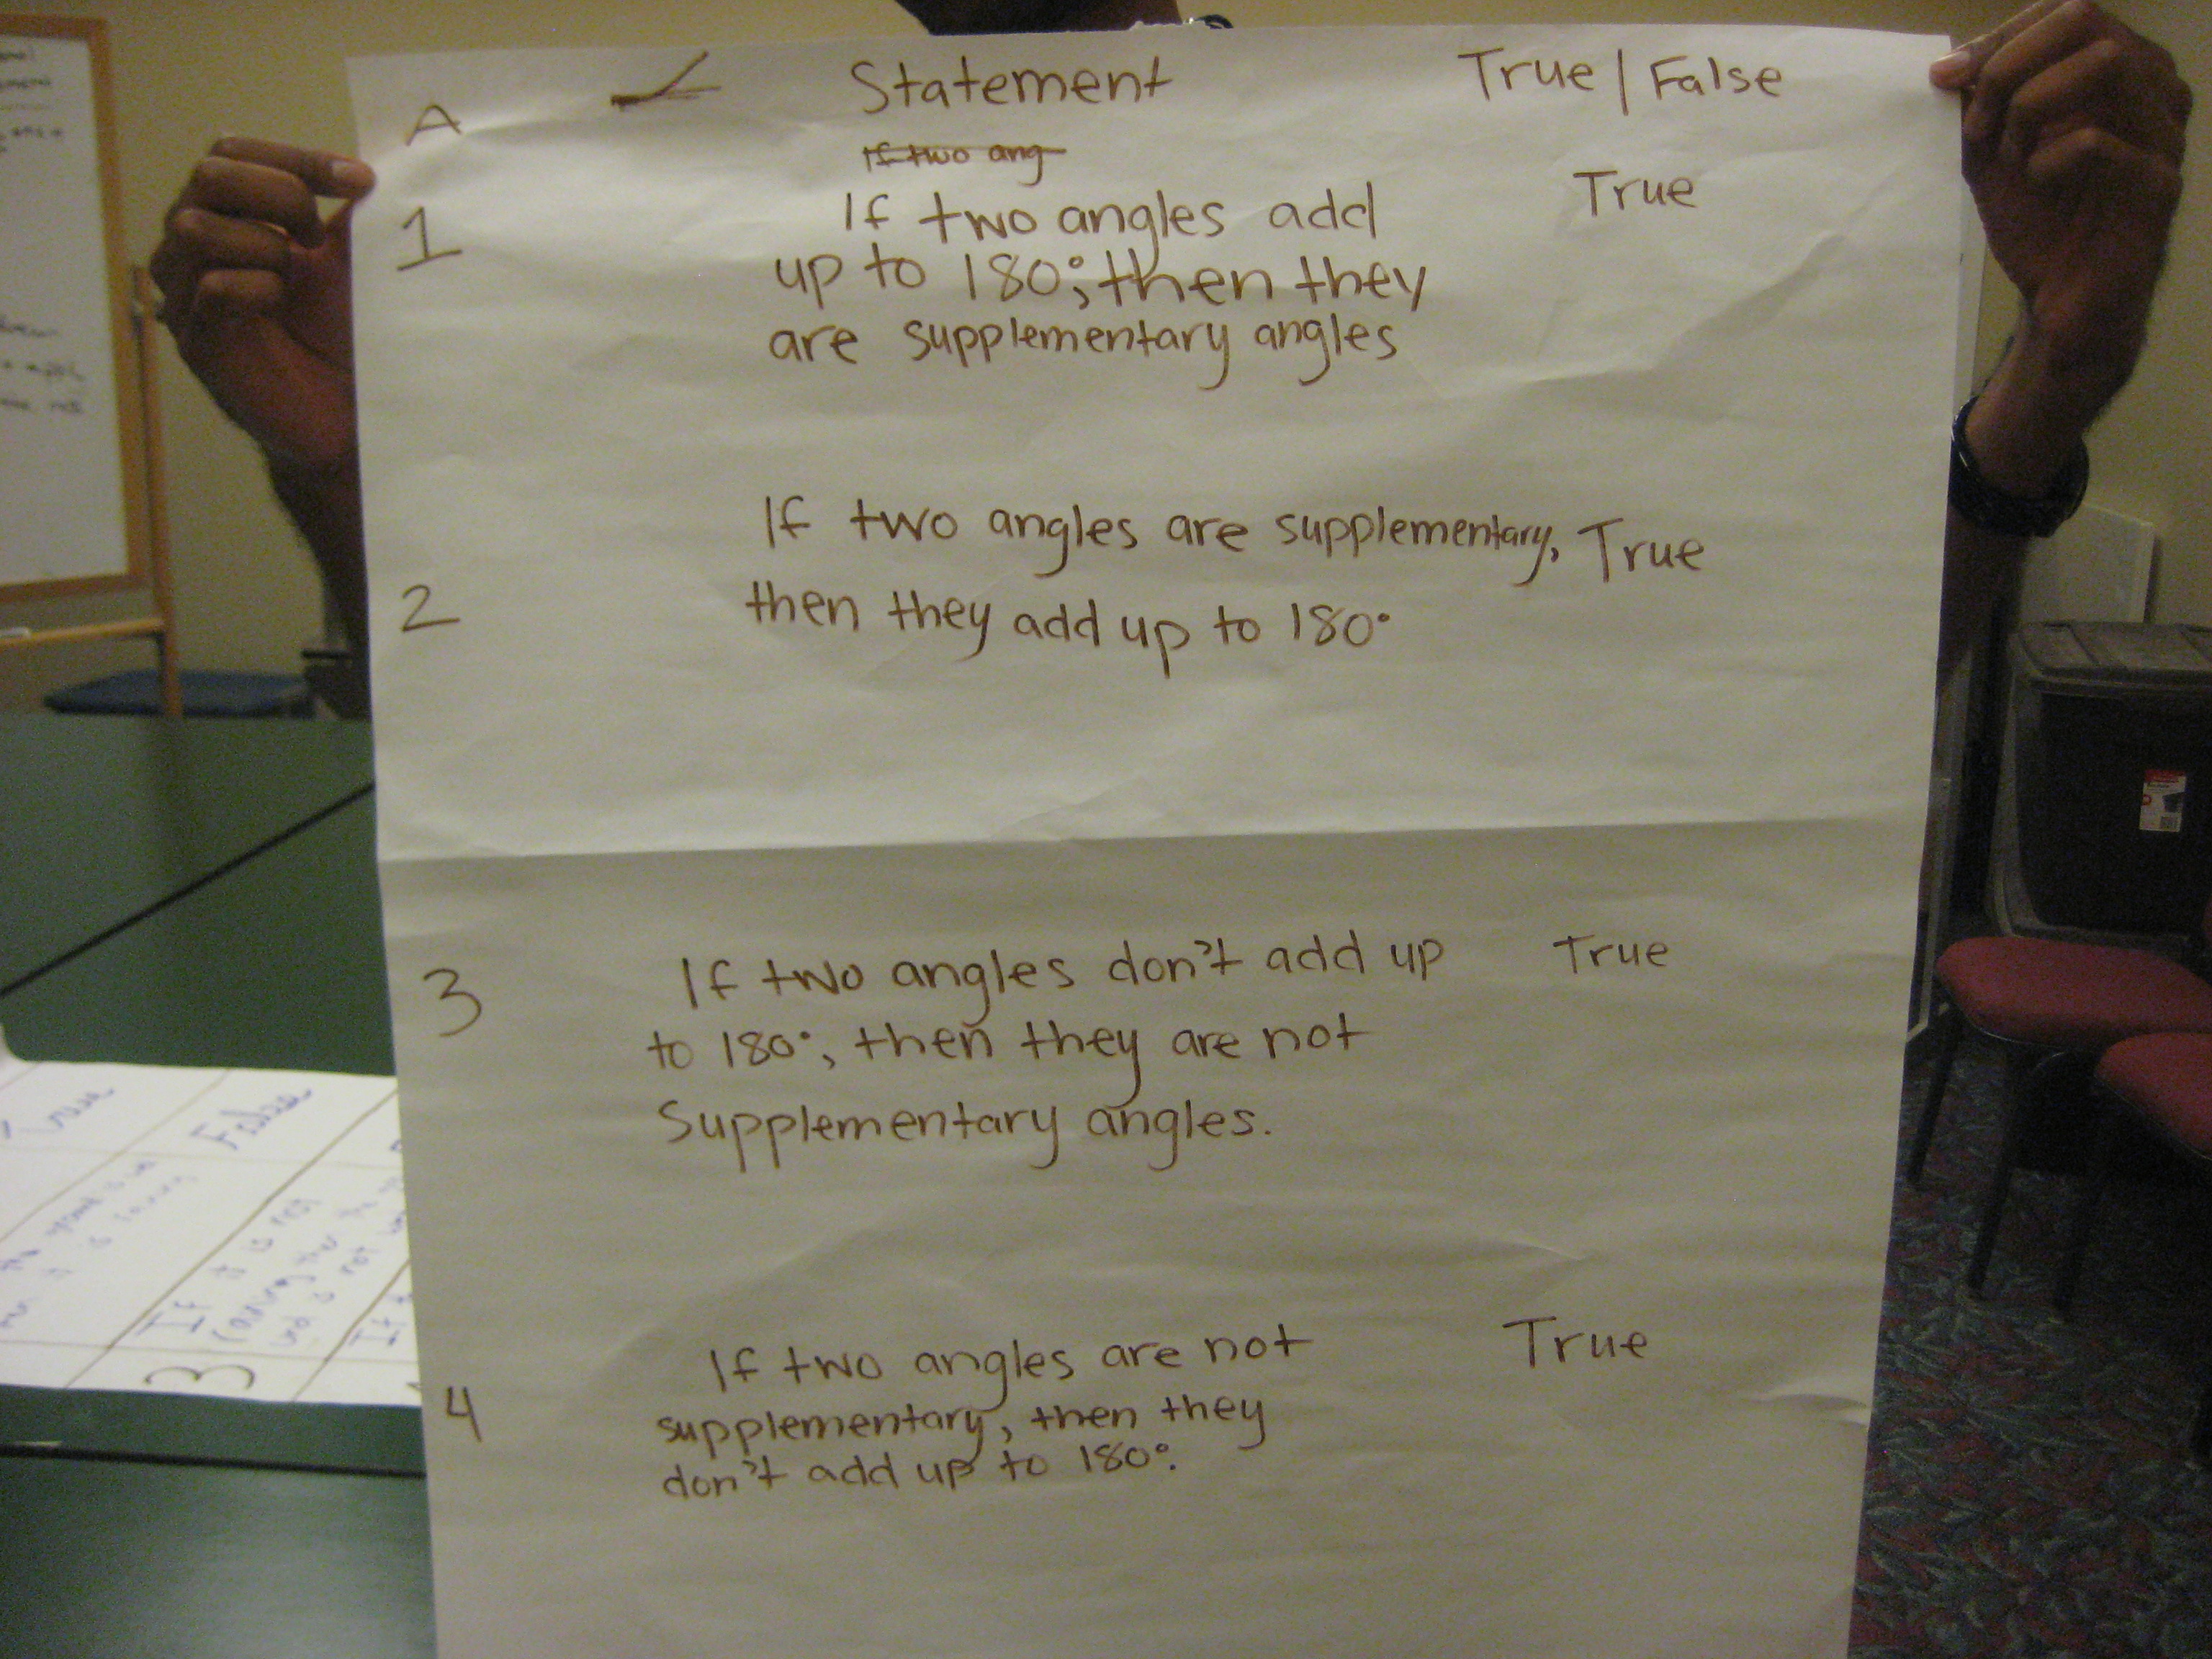 A Statement True | False
If two ang
1 If two angles add True
up to 180°; then they
are supplementary angles
If two angles are supplementary, True
2 then they add up to 180°
3 If two angles don't add up True
to 180°, then they are not
Supplementary angles.
If two angles are not True
4 supplementary, then they
don't add up to 180°.
False
3 If it is not